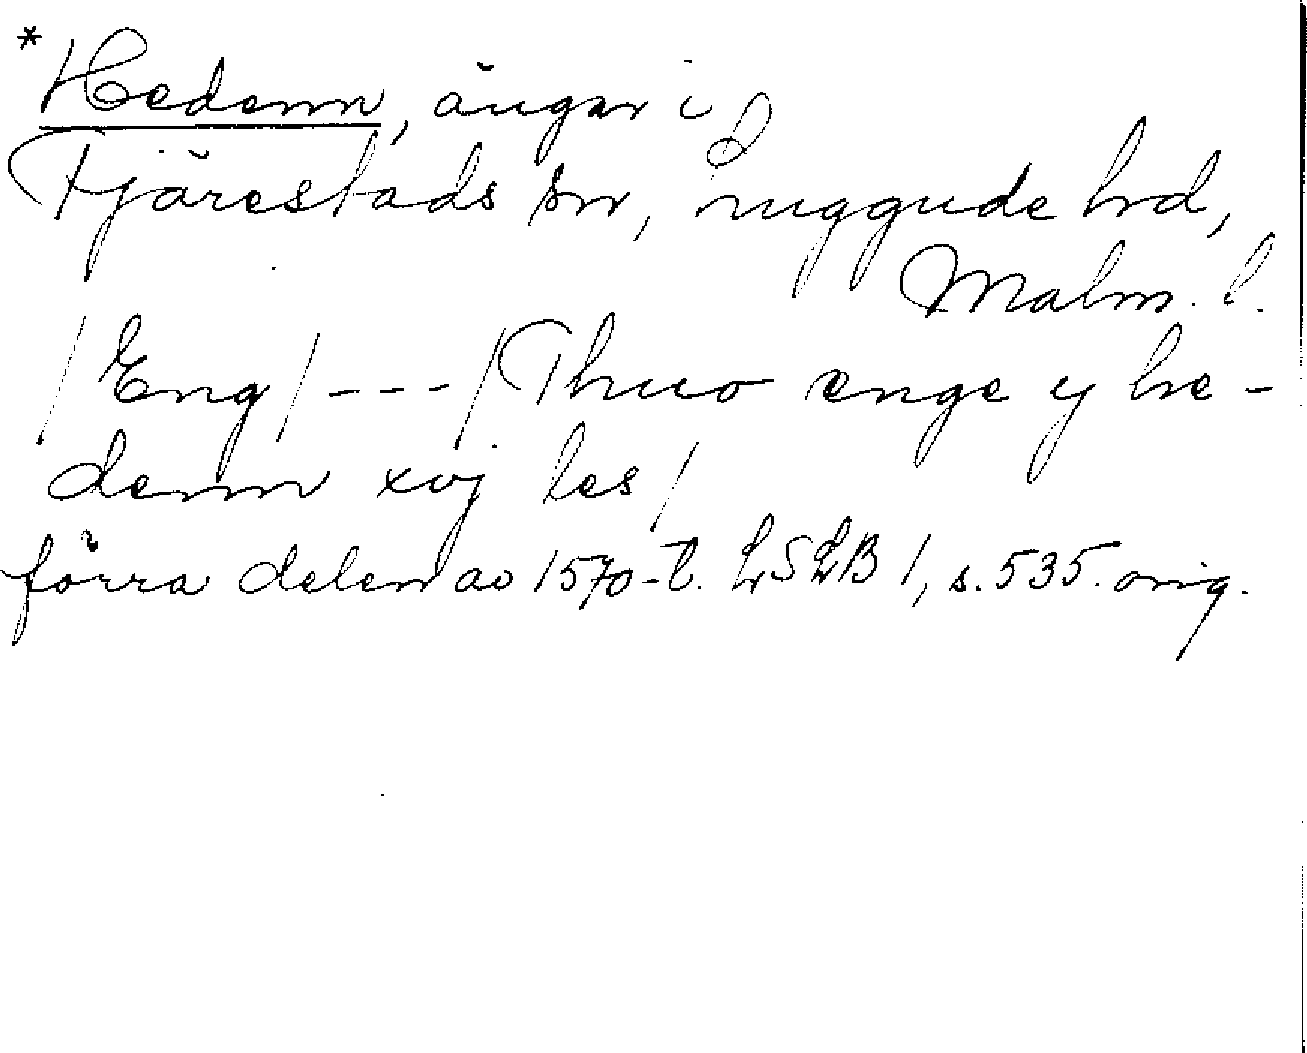 *Hedenn, ängar i
Fjärestads sn, Luggude hd,
Malm. l.
/Eng/ --- /Thuo enge y he-
denn xvj les/
förra delen av 1570-t. LSLB 1, s. 535. orig.